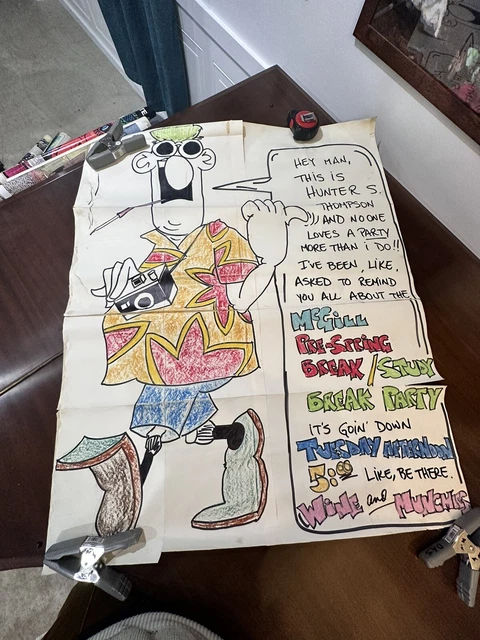 HEY MAN,
THIS IS
HUNTER S.
THOMPSON
AND NO ONE
LOVES A PARTY
MORE THAN i DO!!
I'VE BEEN, LIKE,
ASKED TO REMIND
YOU ALL ABOUT THE
McGILL
PRE-SPRING
BREAK / STUDY
BREAK PARTY
IT'S GOIN' DOWN
TUESDAY AFTERNOON
5:00 LIKE, BE THERE.
WINE and MUNCHIES